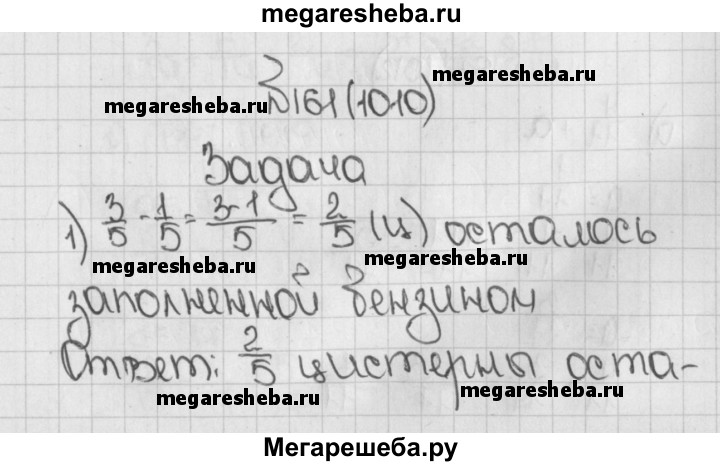 megaresheba.ru
megaresheba.ru
№161(1010)
megaresheba.ru
Задача
1) 3/5 - 1/5 = 3-1/5 = 2/5 (ц) осталось
megaresheba.ru
megaresheba.ru
заполненной бензином
Ответ: 2/5 цистерны оста-
megaresheba.ru
megaresheba.ru
Мегарешеба.ру